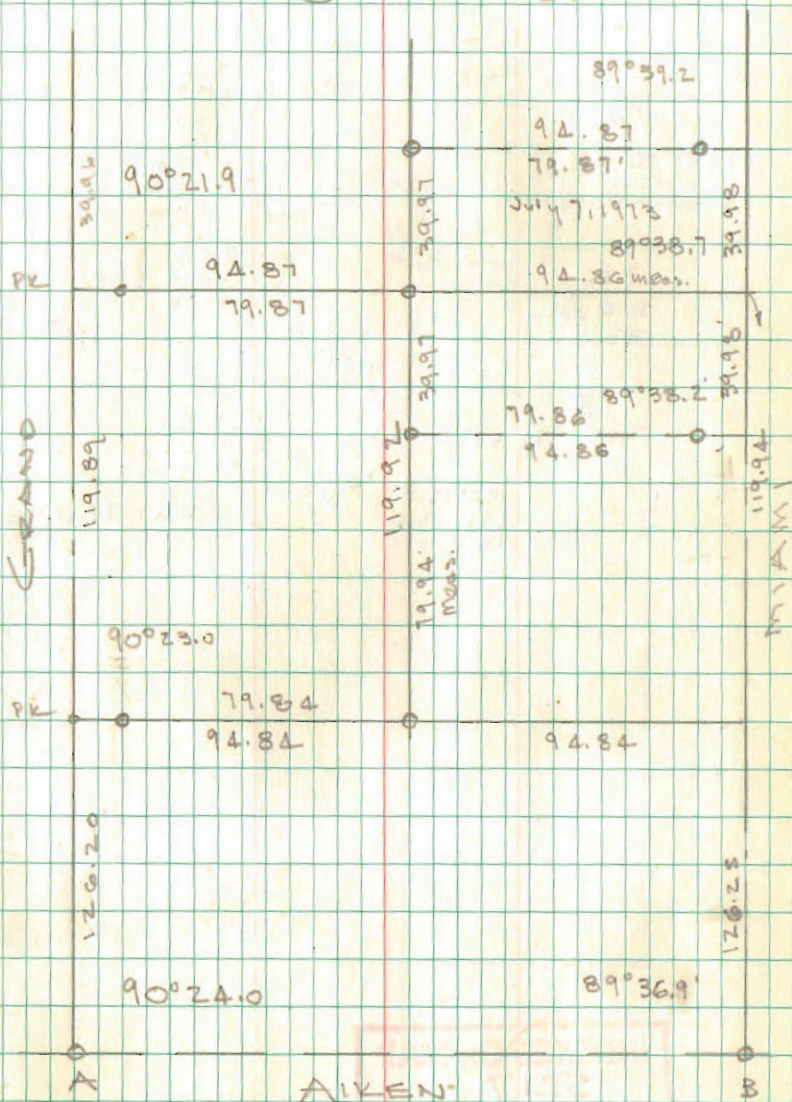 89°39.2
94.87
79.87'
39.96
90°21.9
39.97
July 7, 1973
39.98
89°38.7
PK
94.87
94.86 meas.
79.87
39.97
39.98'
89°38.2'
79.86
94.86
GRAND
119.89
119.92
119.94
MIAMI
79.94'
meas.
90°23.0
PK
79.84
94.84
94.84
126.20
126.25
90°24.0
89°36.9'
A
AIKEN
B